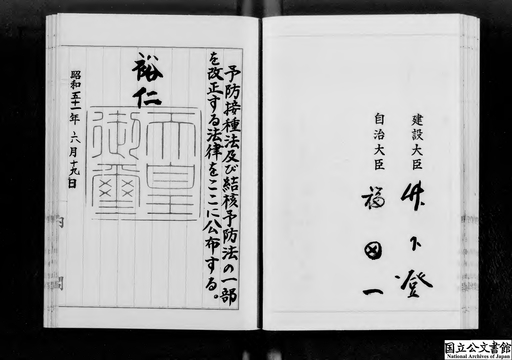 建設大臣
竹下登
自治大臣
福田一
予防接種法及び結核予防法の一部
を改正する法律をここに公布する。
裕仁
天皇
御璽
昭和五十一年六月十九日
内閣
国立公文書館
National Archives of Japan